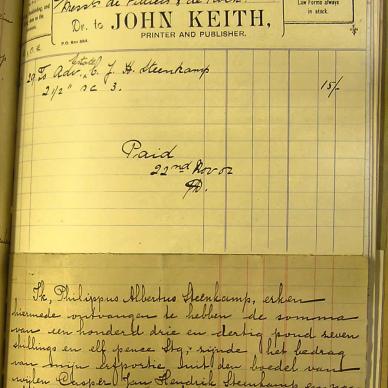 Messrs de Villiers & de Kock
Law Forms always
in stock.
Dr. to JOHN KEITH,
P.O. Box 554.
PRINTER AND PUBLISHER.
29 To Adv. Estate C. J. H. Steenkamp
2 1/2" sc 3. 15/-
Paid
22nd Nov 02
Ik, Philippus Albertus Steenkamp, erken
hiermede ontvangen te hebben de somma
van een honderd drie en dertig pond seven
shillings en elf pence Stg; zijnde het bedrag
van mijn erfportie uit den boedel van
wijlen Casper Jan Hendrik Steenkamp